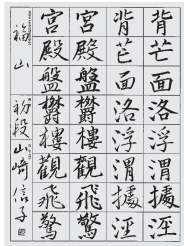 背芒面洛浮渭據涇
背芒面洛浮渭據涇
宮殿盤欝樓觀飛驚
宮殿盤欝樓觀飛驚
福山 初段 山崎信子